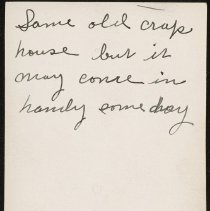 Same old crap
house but it
may come in
handy some day